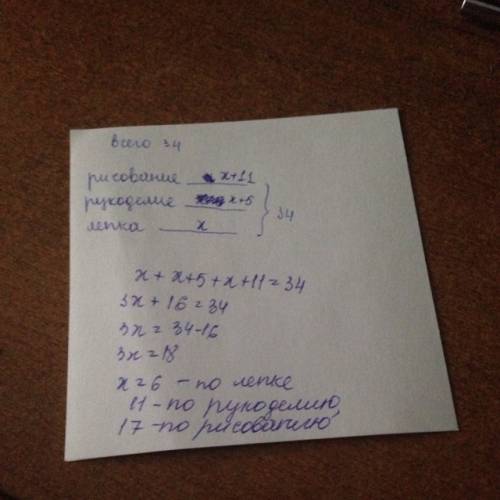 всего 34
рисование x+11
рукоделие x+5
лепка x
} 34
x + x+5 + x+11 = 34
3x + 16 = 34
3x = 34-16
3x = 18
x = 6 - по лепке
11 - по рукоделию,
17 - по рисованию